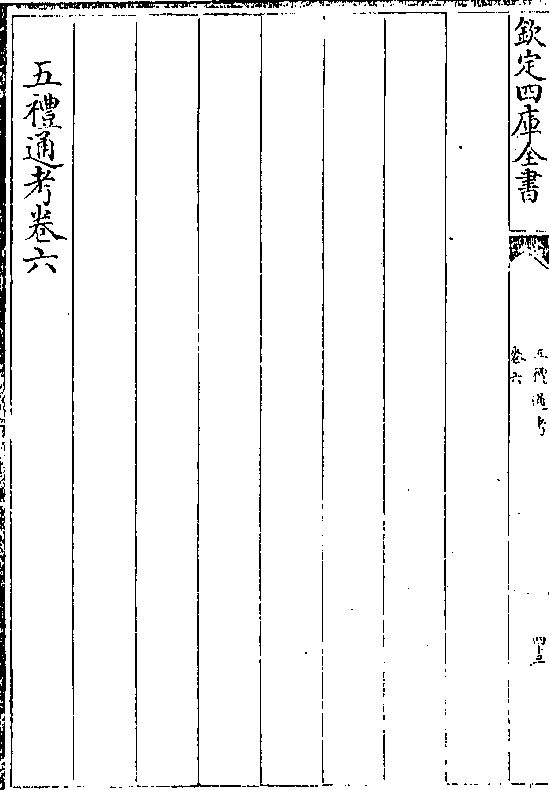 欽定四庫全書
五禮通考
卷六
四十三
五禮通考卷六